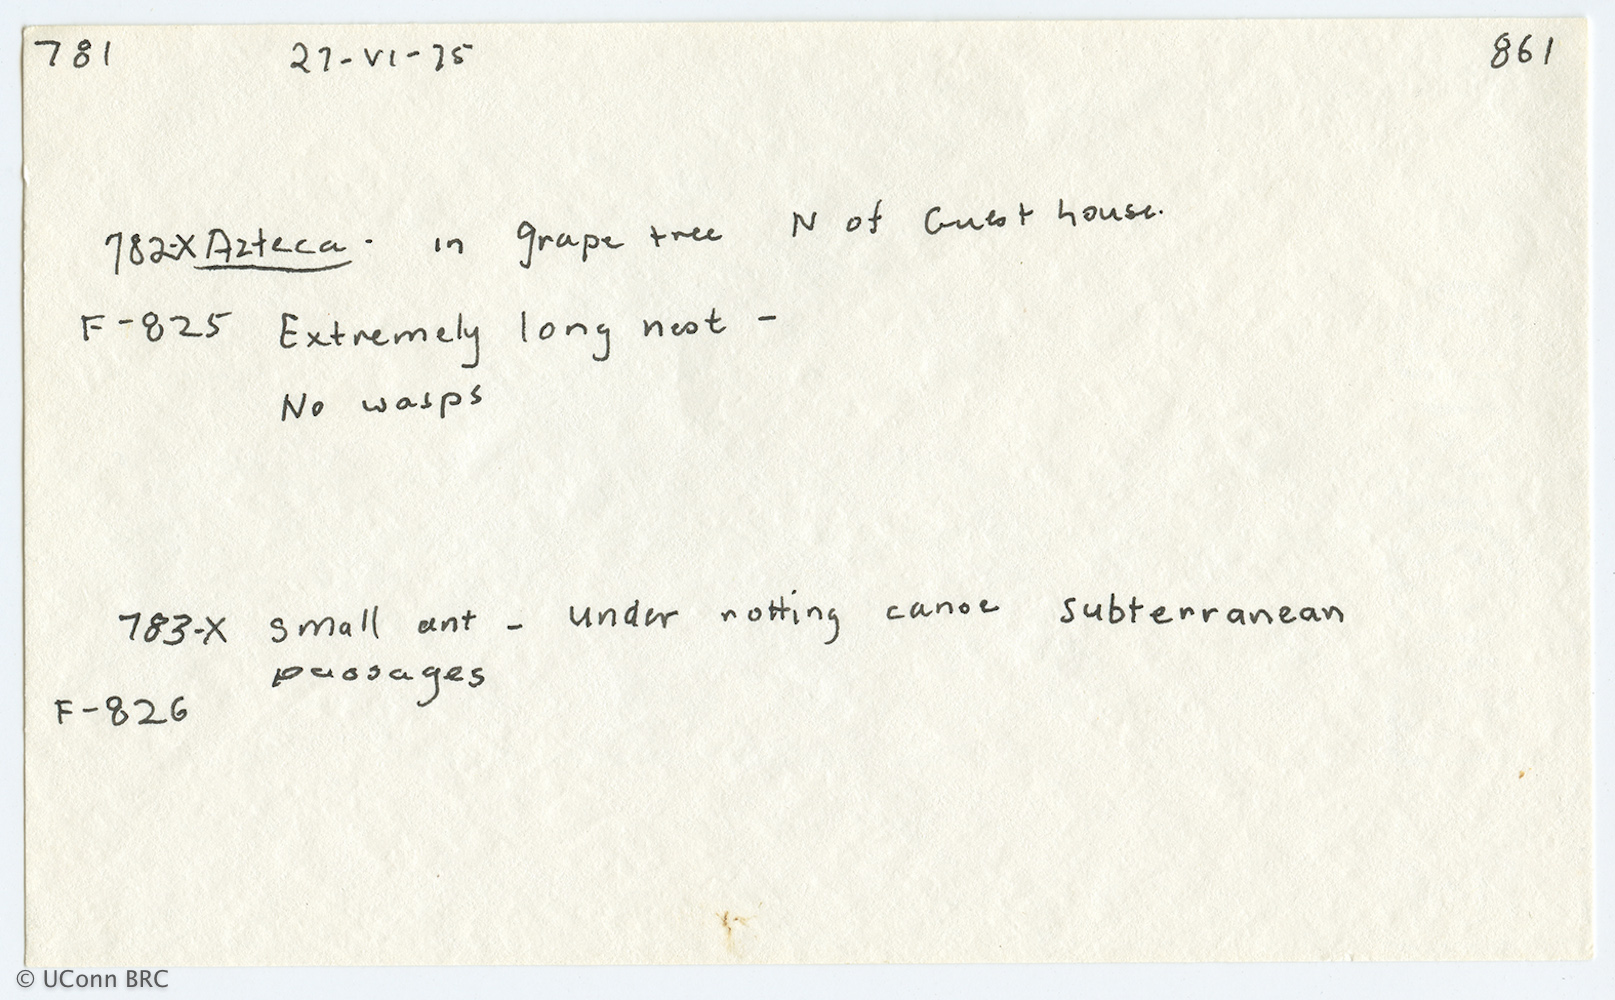 781 27-VI-75 861
782-X Azteca. in grape tree N of Guest house.
F-825 Extremely long nest -
No wasps
783-X small ant - under rotting canoe subterranean
passages
F-826
© UConn BRC